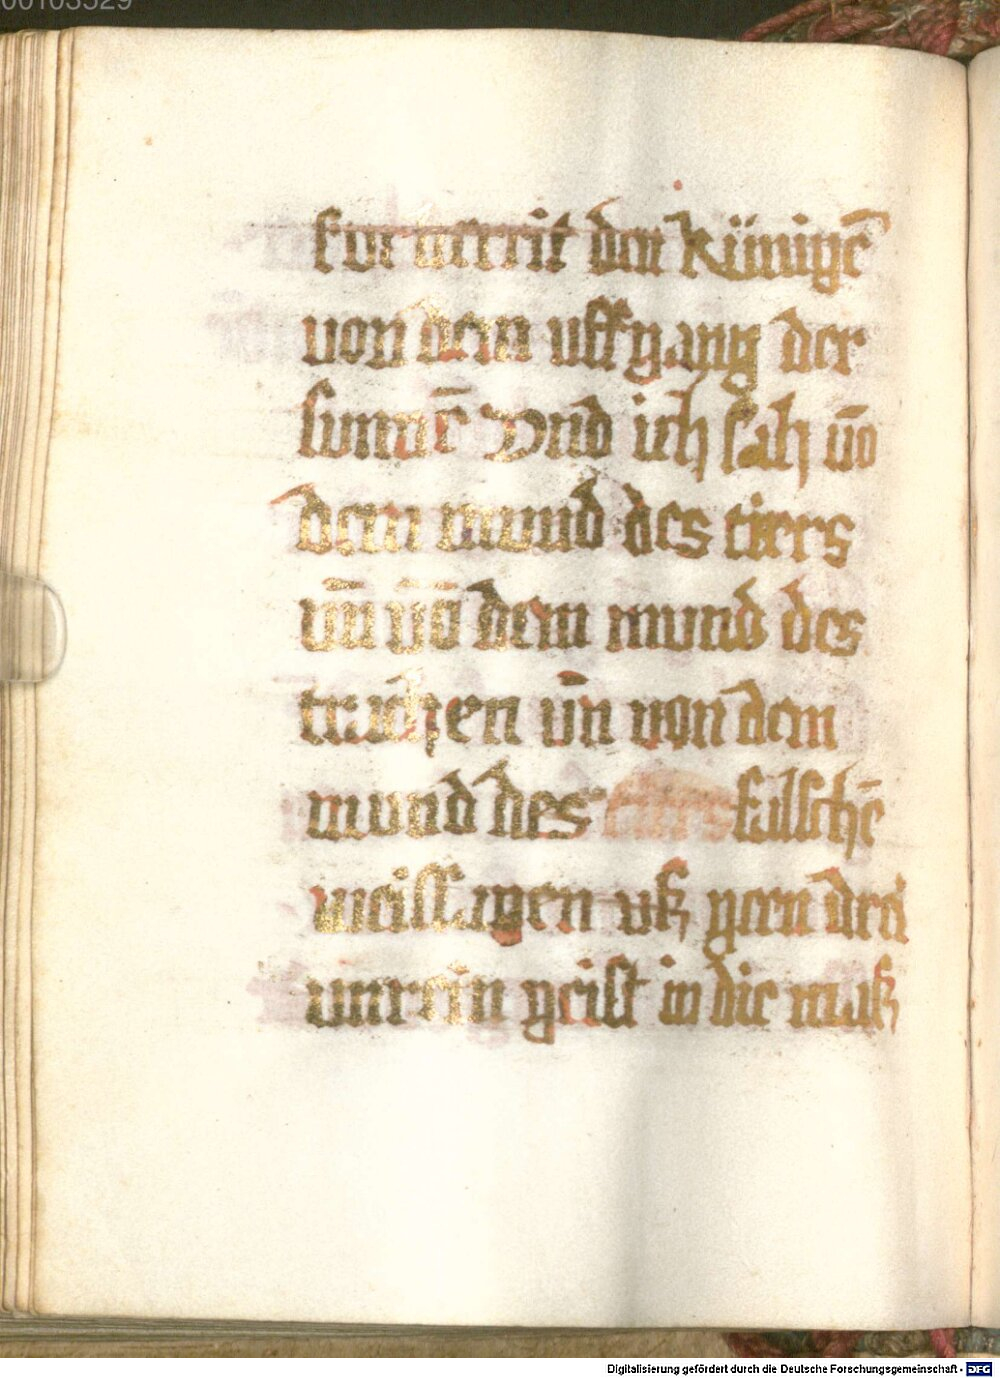 00103529
för bereit den Künigē
von dem uffgang der
sunnē Vnd ich sah vō
dem mund des tiers
vn̄ vō dem mund des
trachen vn̄ von dem
mund des falschē
weissagen uß gien drei
unrein geist in die maß
Digitalisierung gefördert durch die Deutsche Forschungsgemeinschaft - DFG